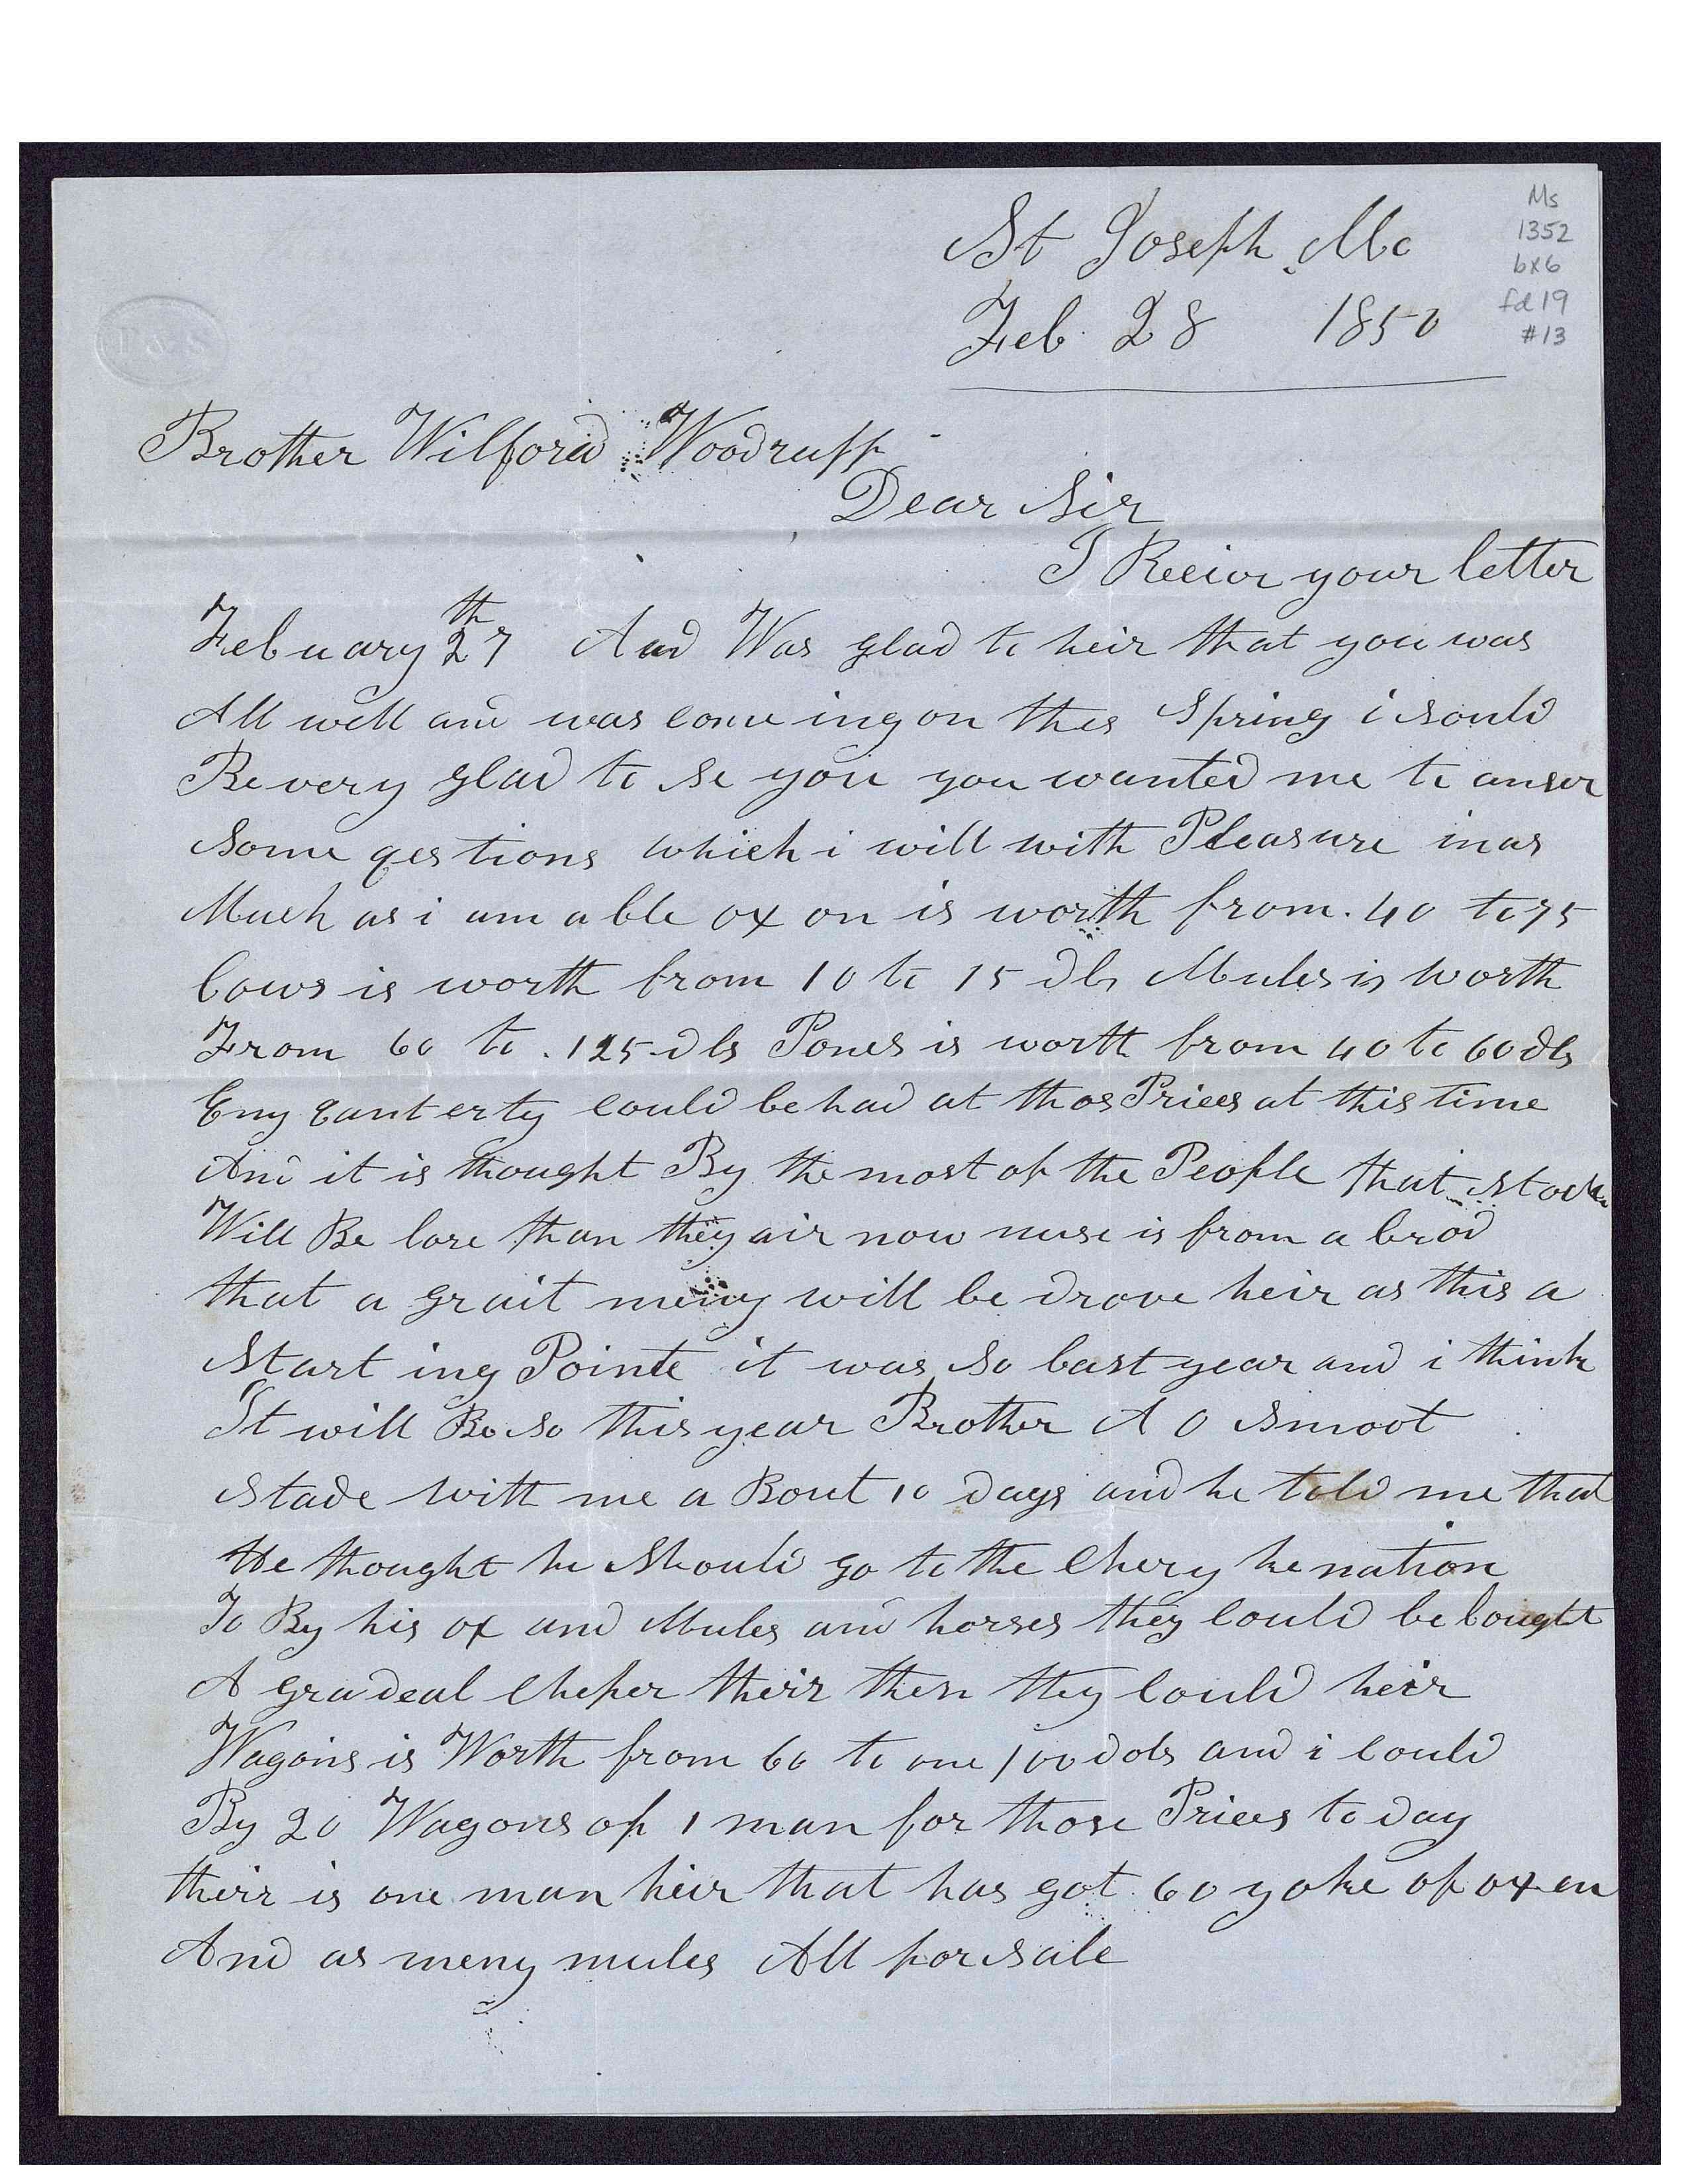 St Joseph Mo
Feb 28 1850
Ms
1352
bx6
fd 19
#13
Brother Wilford Woodruff
Dear Sir
I Reciev your letter
Febuary 27th And Was glad to heir that you was
All well and was comeing on this Spring i sould
Be very glad to se you you wanted me to anser
Some qestions which i will with Pleasure in as
Much as i am able ox on is worth from 40 to 75
Cows is worth from 10 to 15 dls Mules is worth
From 60 to 125 dls Pones is worth from 40 to 60 dls
Eny qanterty could be had at thos Prices at this time
And it is thought By the most of the People that stock
Will Be lore than they air now nuse is from a brod
that a grait meny will be drove heir as this a
Starting Pointe it was so last year and i think
It will Be so this year Brother A O Smoot
Stade with me a Bout 10 days and he told me that
He thought he Should go to the Chery ke nation
To By his ox and Mules and horses they could be bought
A gradeal cheper their then they could heir
Wagons is Worth from 60 to one 100 dols and i could
By 20 Wagons of 1 man for those Prices to day
their is one man heir that has got 60 yoke of oxen
And as meny mules All for sale